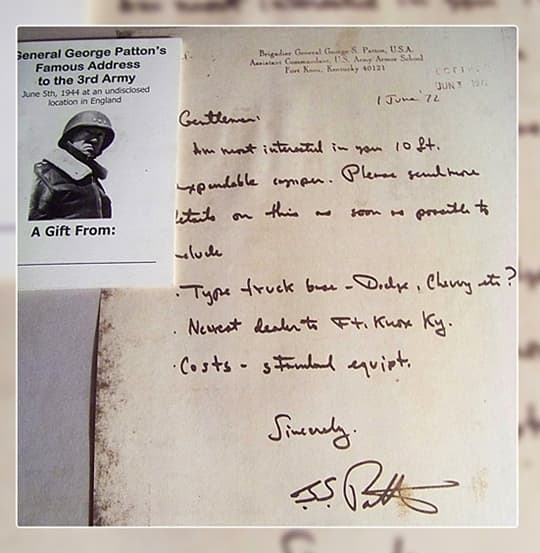 General George Patton's
Famous Address
to the 3rd Army
June 5th, 1944 at an undisclosed
location in England
A Gift From:
Brigadier General George S. Patton, U.S.A.
Assistant Commandant, U.S. Army Armor School
Fort Knox, Kentucky 40121
JUN 7 197
1 June '72
Gentlemen:
Am most interested in your 10 ft.
expandable camper. Please send more
details on this as soon as possible to
include
. Type truck base - Dodge, Chevvy etc?
. Nearest dealer to Ft. Knox Ky.
. Costs - standard equipt.
Sincerely.
G.S. Patton